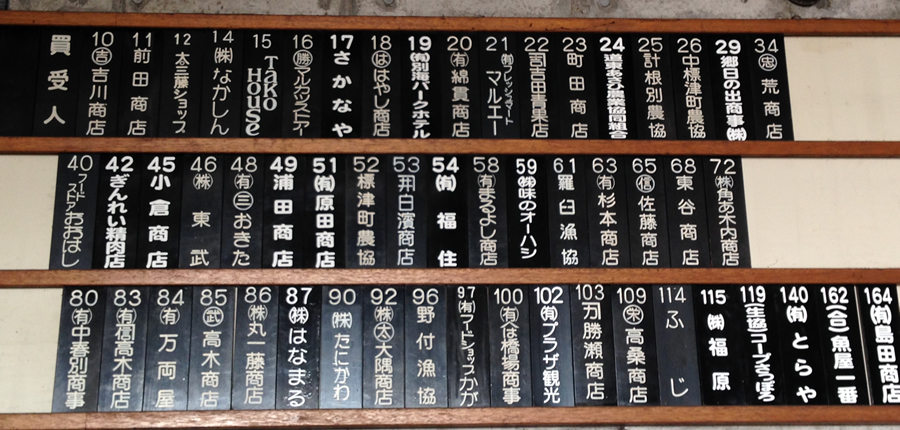 買受人
10 ㊎吉川商店
11 前田商店
12 本三藤ショップ
14 ㈱なかしん
15 Tako House
16 マルカツストア
17 さかなや
18 はやし商店
19 ㈲別海パークホテル
20 ㈲綿貫商店
21 マルエー
22 吉田青果店
23 町田商店
24 道東あさひ農業協同組合
25 計根別農協
26 中標津町農協
29 郷日の出商事㈱
34 荒商店
40 フードストアおおはし
42 ぎんれい精肉店
45 小倉商店
46 ㈱東武
48 ㈲㊂おきた
49 浦田商店
51 ㈲原田商店
52 標津町農協
53 白濱商店
54 ㈲福住
58 ㈲まるよし商店
59 ㈱味のオーハシ
61 羅臼漁協
63 ㈲杉本商店
65 佐藤商店
68 東谷商店
72 ㈱角あ木内商店
80 ㈲中春別商店
83 ㈲高木商店
84 ㈲万両屋
85 高木商店
86 ㈱丸一藤商店
87 ㈱はなまる
90 ㈱たにかわ
92 ㈱大隅商店
96 野付漁協
97 ㈲フードショップかが
100 ㈲八橋場商事
102 ㈲プラザ観光
103 勝瀬商店
109 高桑商店
114 ふじ
115 ㈱福原
119 生協コープさっぽろ
140 ㈲とらや
162 (合)魚屋一番
164 ㈲島田商店